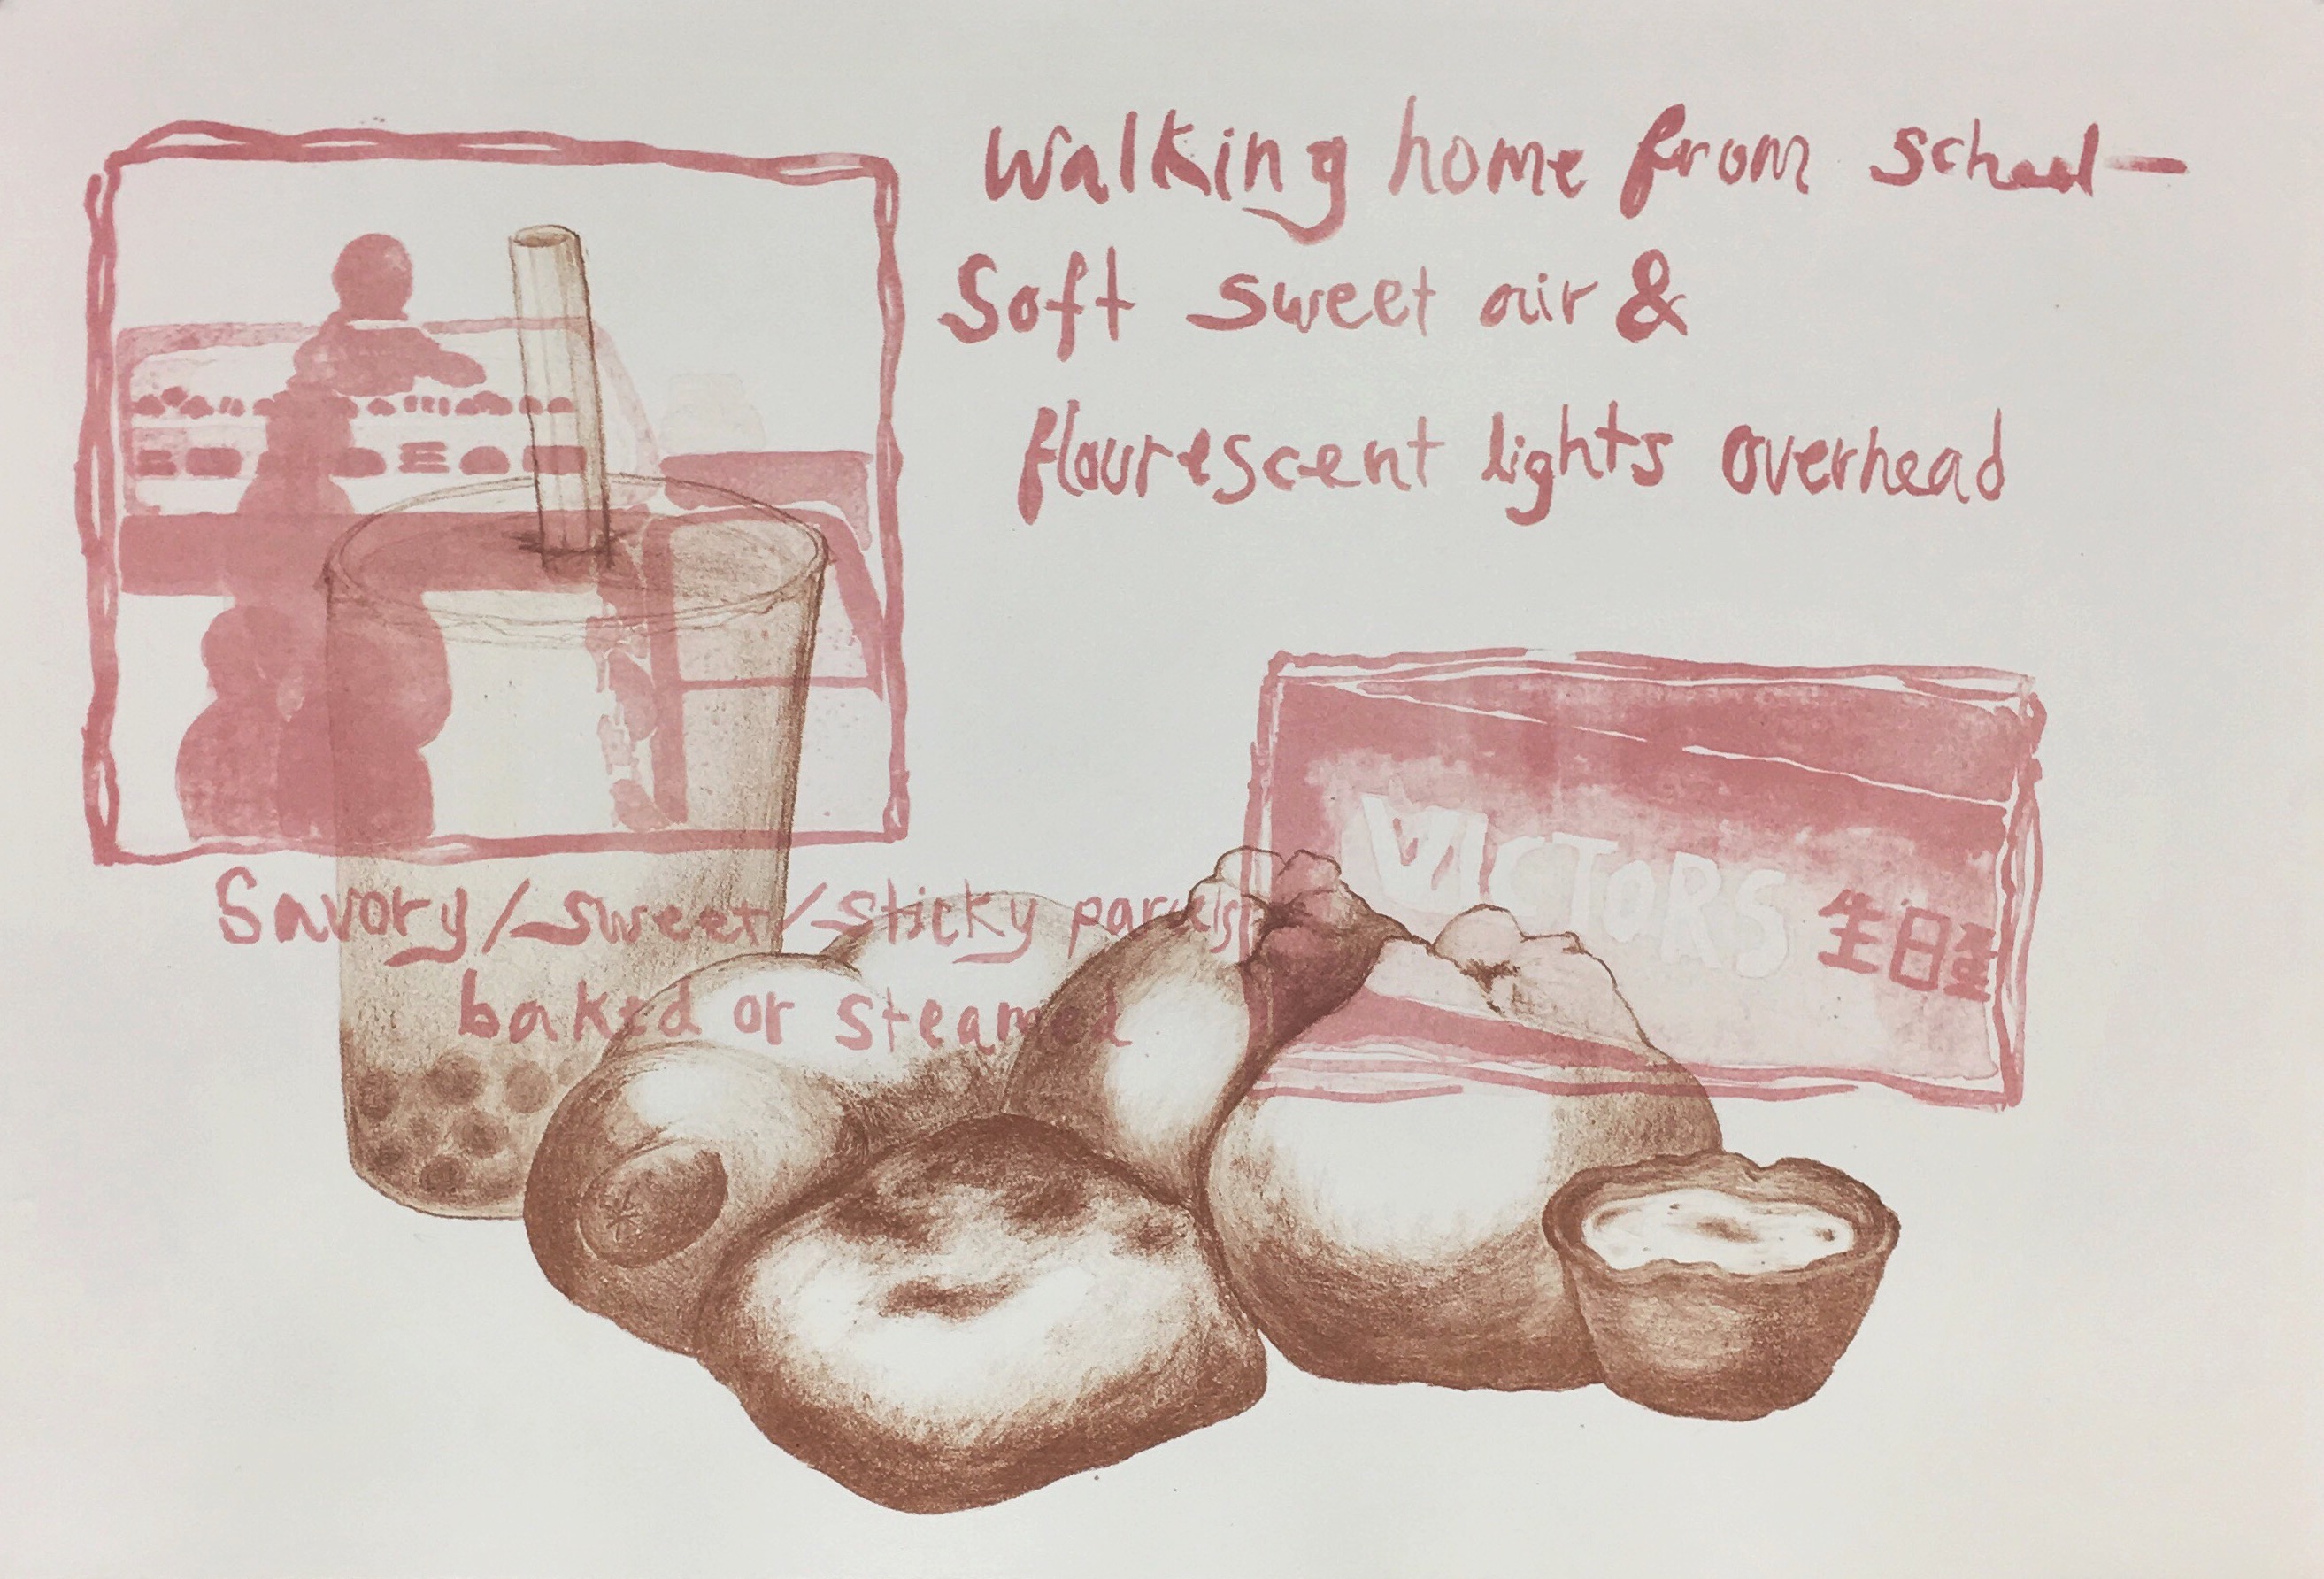 Walking home from school—
Soft sweet air &
flourescent lights overhead
VICTORS 生日
Savory/sweet/sticky parcels
baked or steamed